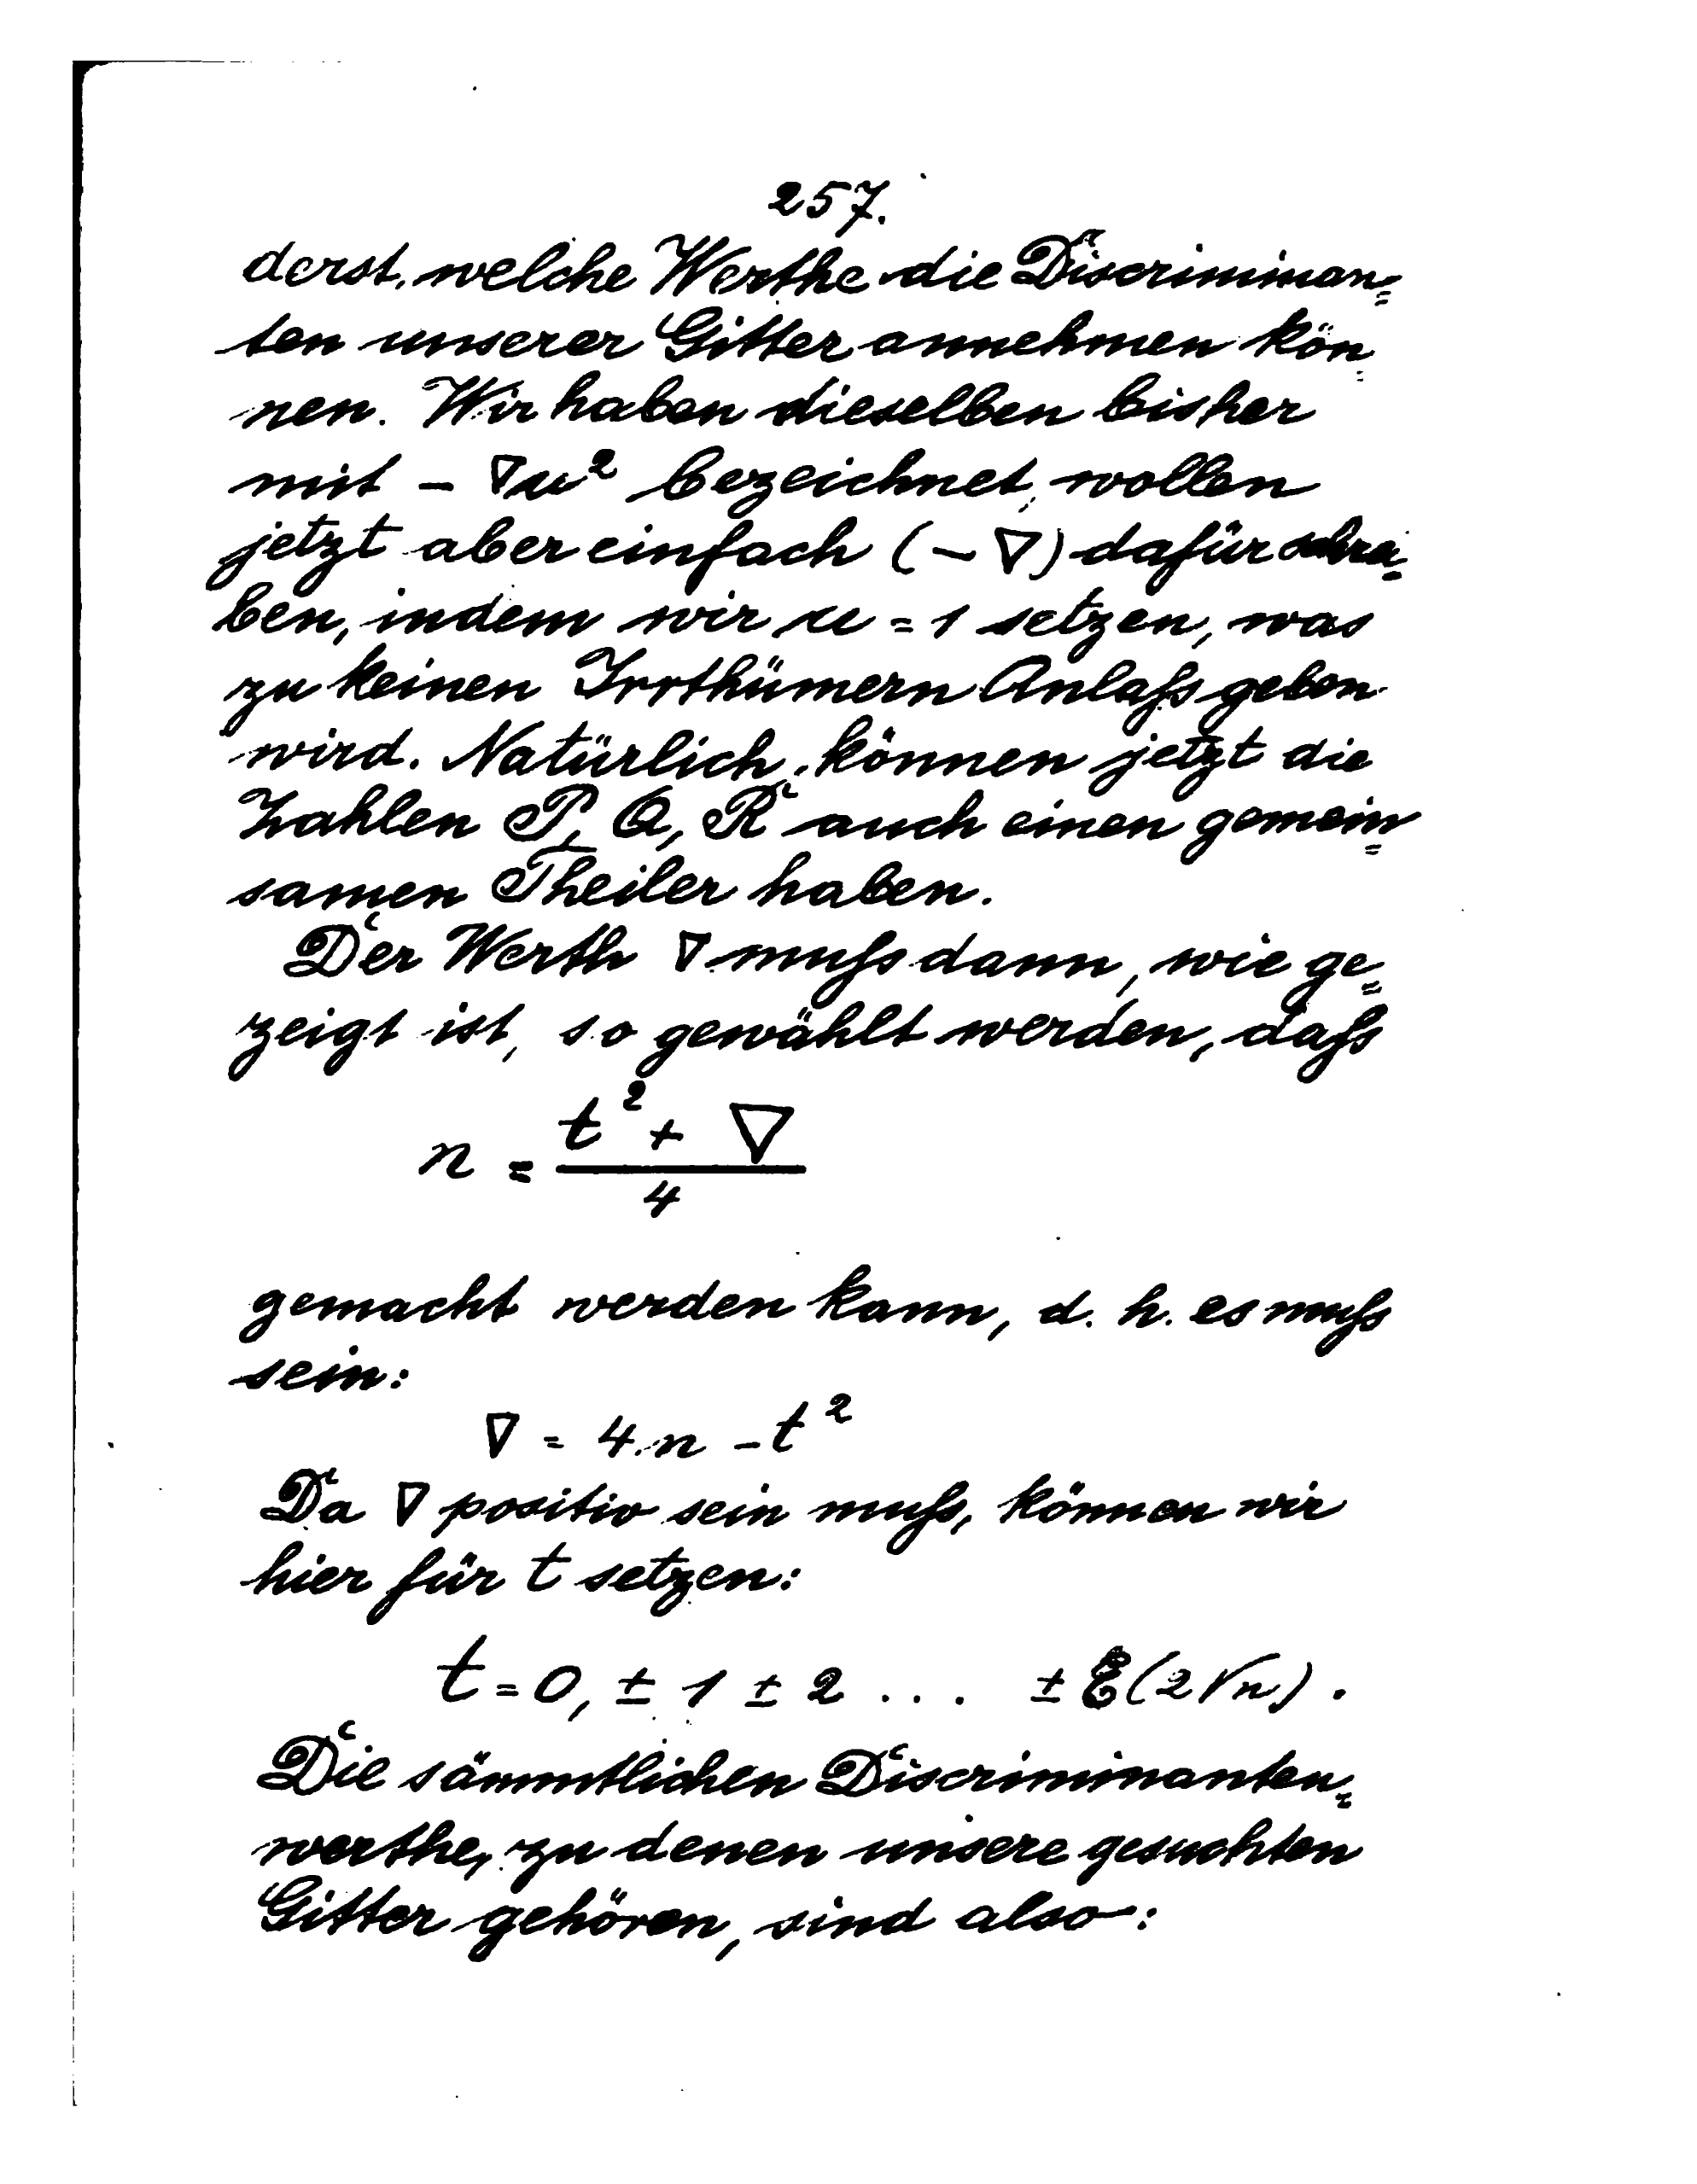 257.
derst, welche Werthe die Discriminan=
ten unserer Gitter annehmen kön=
nen. Wir haben dieselben bisher
mit - ∇u² bezeichnet, wollen
jetzt aber einfach (- ∇) dafür schrei=
ben, indem wir u = 1 setzen, was
zu keinen Irrthümern Anlaſs geben
wird. Natürlich können jetzt die
Zahlen P, Q, R auch einen gemein=
samen Theiler haben.
Der Werth ∇ muſs dann, wie ge=
zeigt ist, so gewählt werden, daſs
n = (t² + ∇)/4
gemacht werden kann, d. h. es muſs
sein:
∇ = 4.n - t²
Da ∇ positiv sein muſs, können wir
hier für t setzen:
t = 0, ± 1 ± 2 ... ± E(2√n).
Die sämmtlichen Discriminanten=
werthe, zu denen unsere gesuchten
Gitter gehören, sind also: